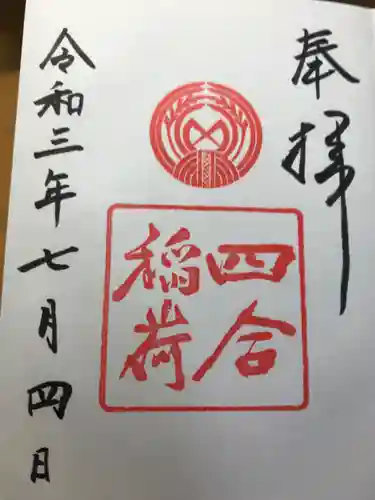 奉拝
四合
稲荷
令和三年七月四日